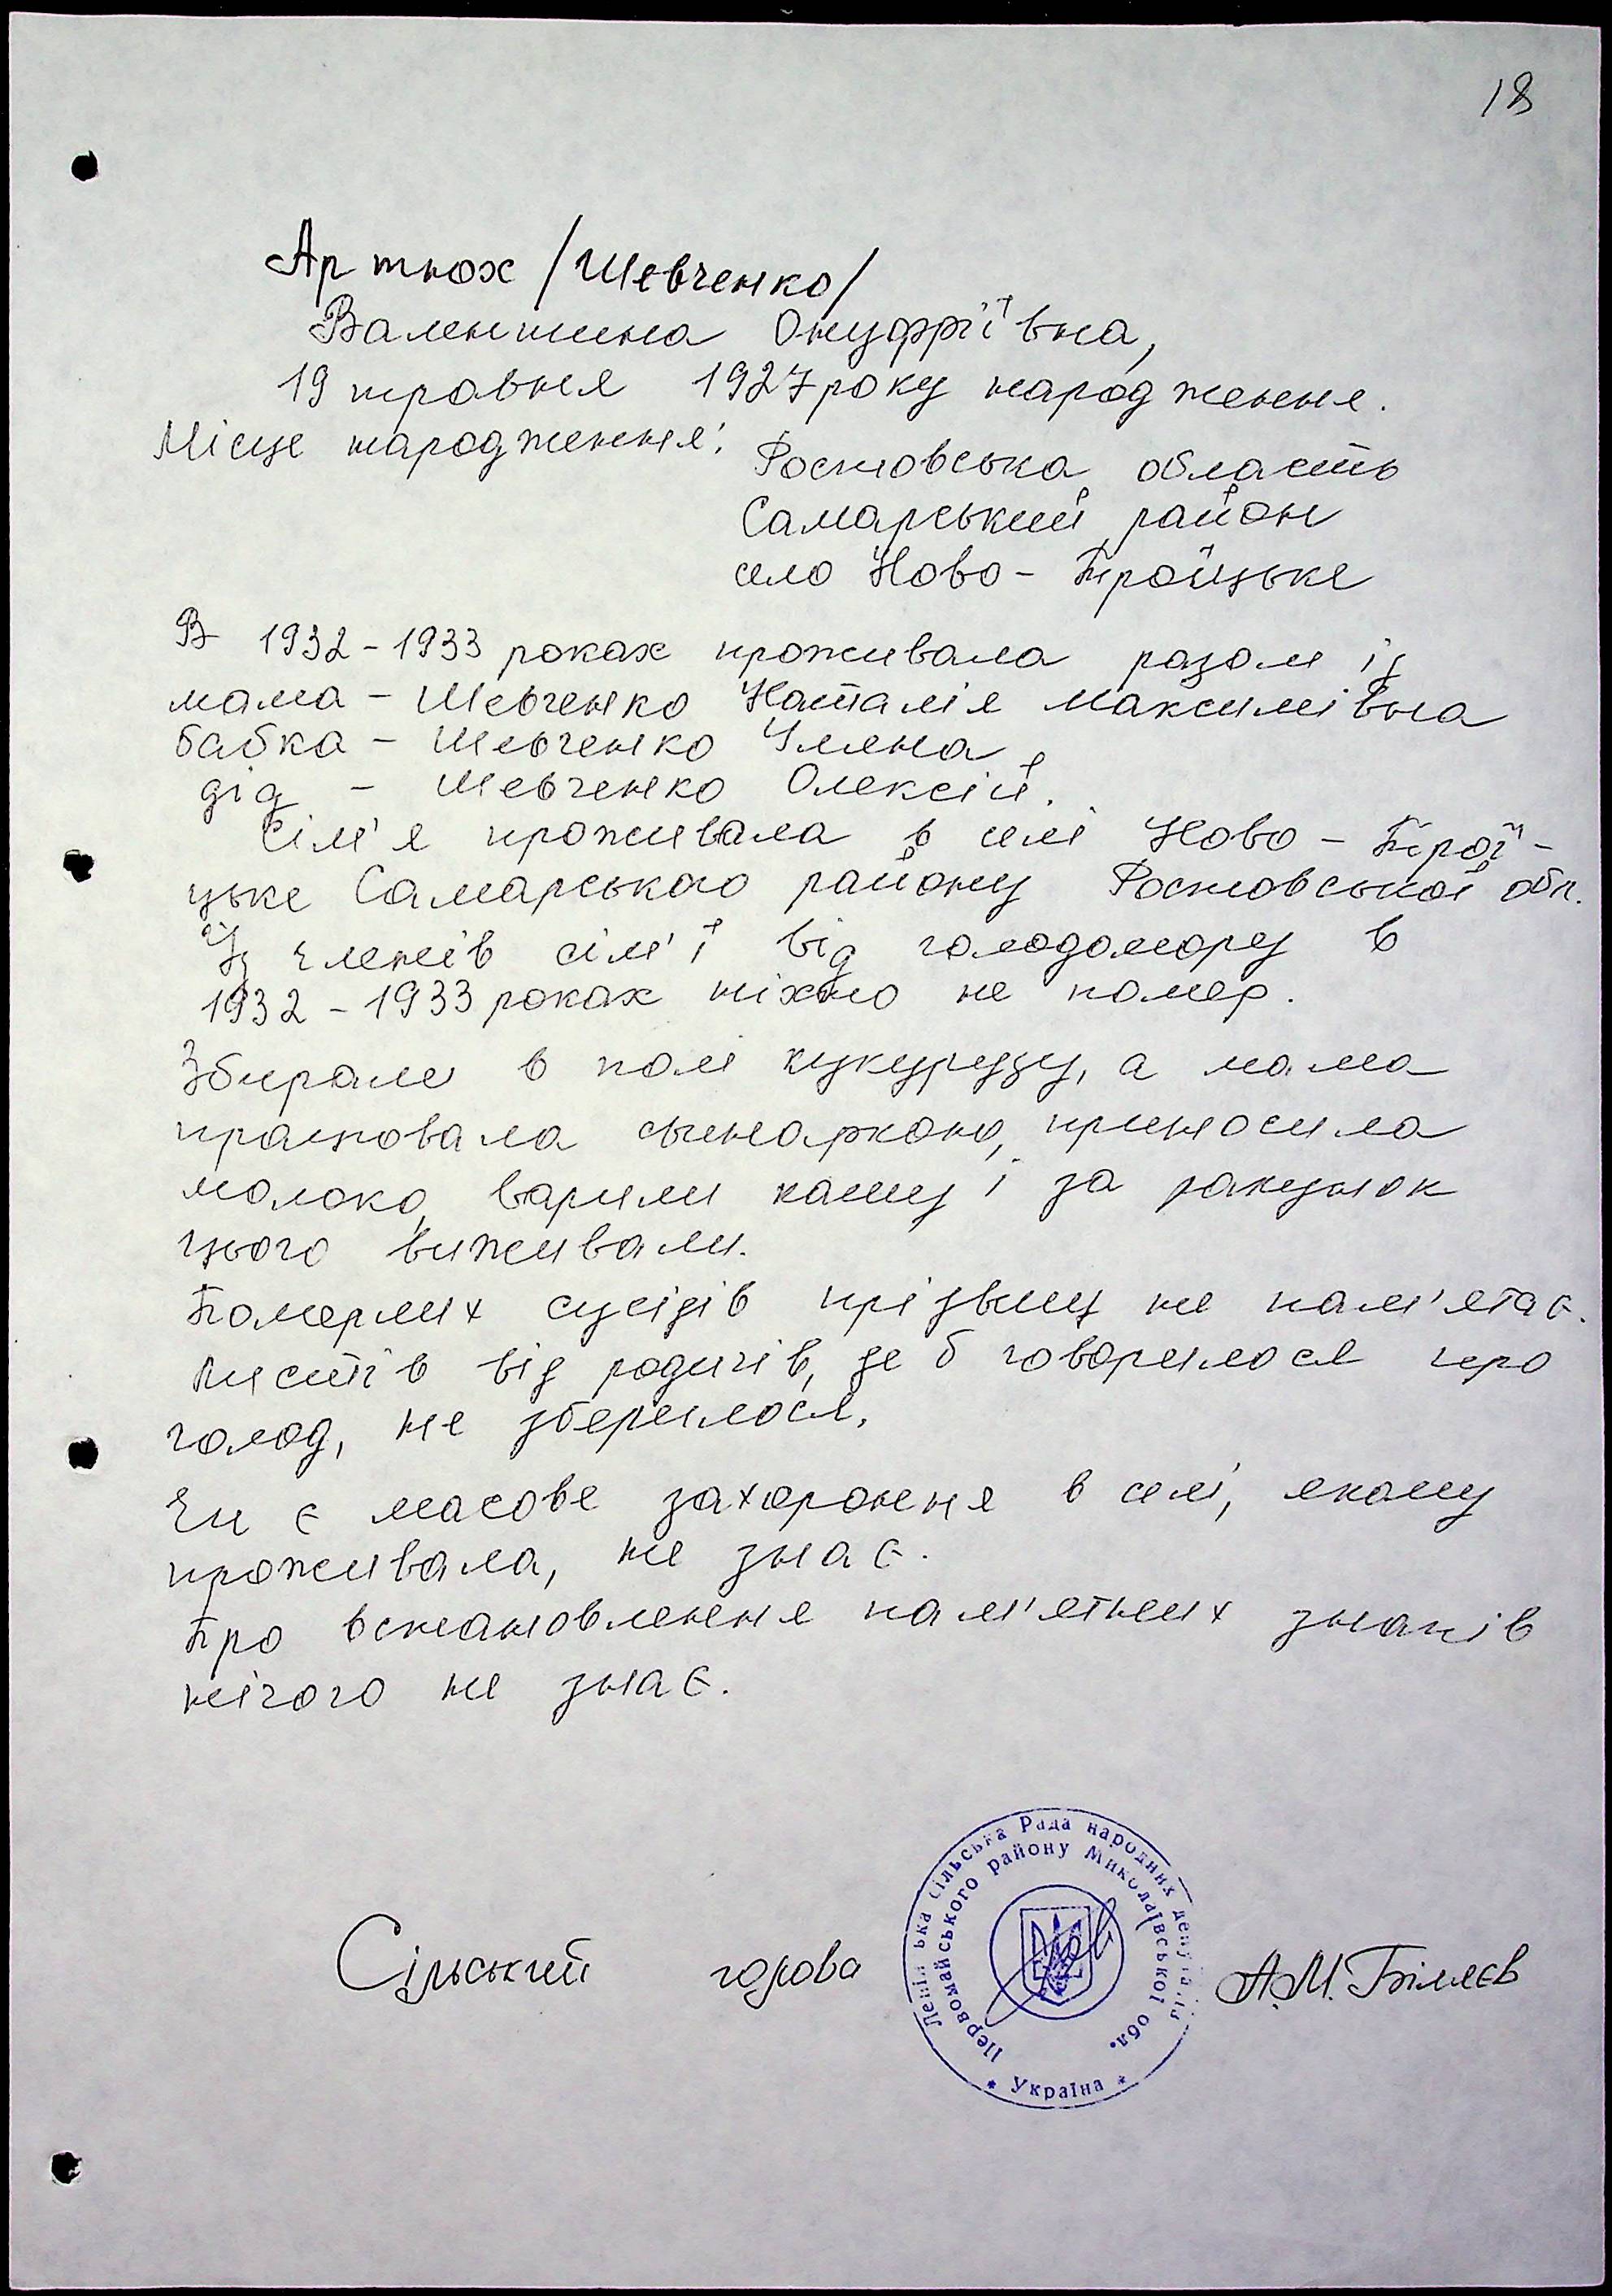 18
Артюх /Шевченко/
Валентина Онуфріївна,
19 травня 1927 року народження.
Місце народження:
Ростовська область
Самарський район
село Ново-Троїцьке
В 1932-1933 роках проживала разом із
мама - Шевченко Наталія Максимівна
бабка - Шевченко Уляна
дід - Шевченко Олексій.
Сім'я проживала в селі Ново-Трої-
цьке Самарського району Ростовської обл.
Із членів сім'ї від голодомору в
1932-1933 роках ніхто не помер.
Збирали в полі кукурудзу, а мама
працювала свинаркою, приносила
молоко, варили кашу і за рахунок
цього виживали.
Померлих сусідів прізвищ не пам'ятає.
Листів від родичів, де б говорилося про
голод, не збереглося.
Чи є масове захоронення в селі, якому
проживала, не знає.
Про встановлення пам'ятних знаків
нічого не знає.
Сільський голова А.М. Біляєв
сільська Рада народних депутатів
Первомайського району Миколаївської обл.
* Україна *